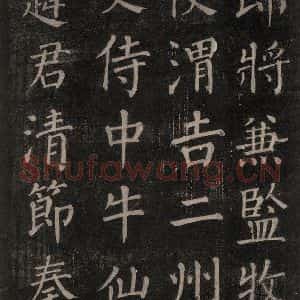 將兼監牧
使渭吉二州
侍中牛仙
趙君清節奉
Shufawang.CN